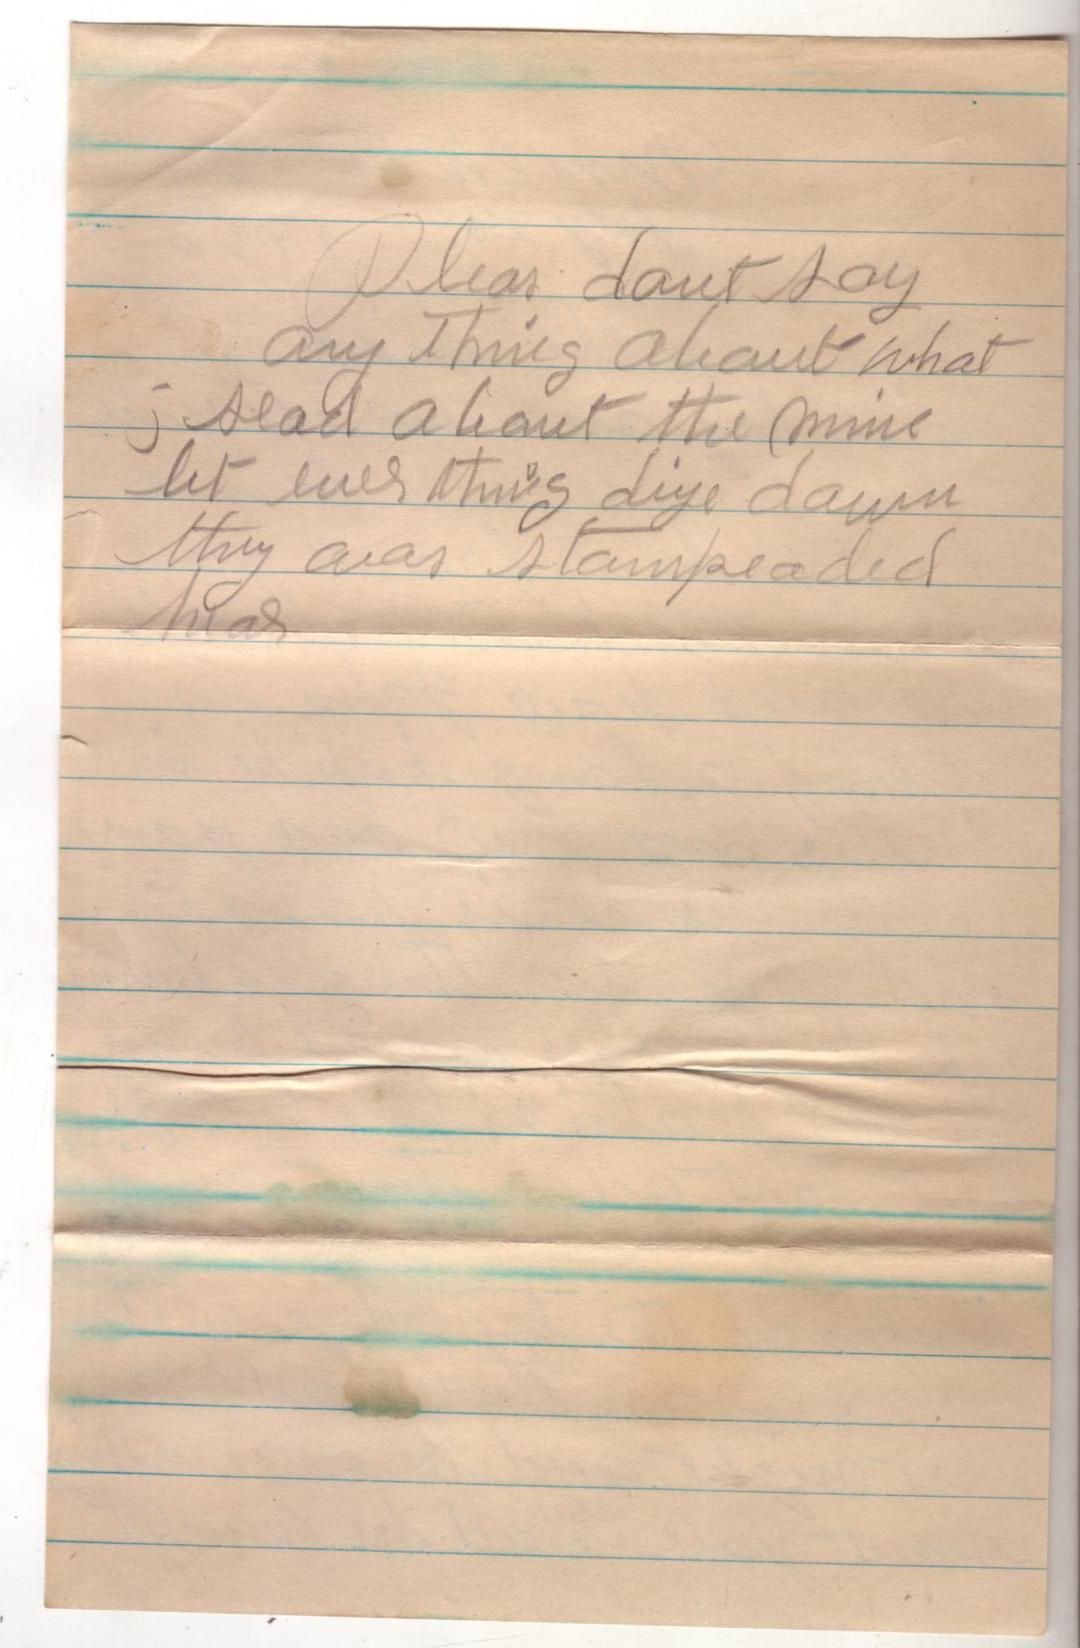 Pleas dont say
any thing about what
i sead about the mine
let ever thing diye down
they was stampeaded
hear